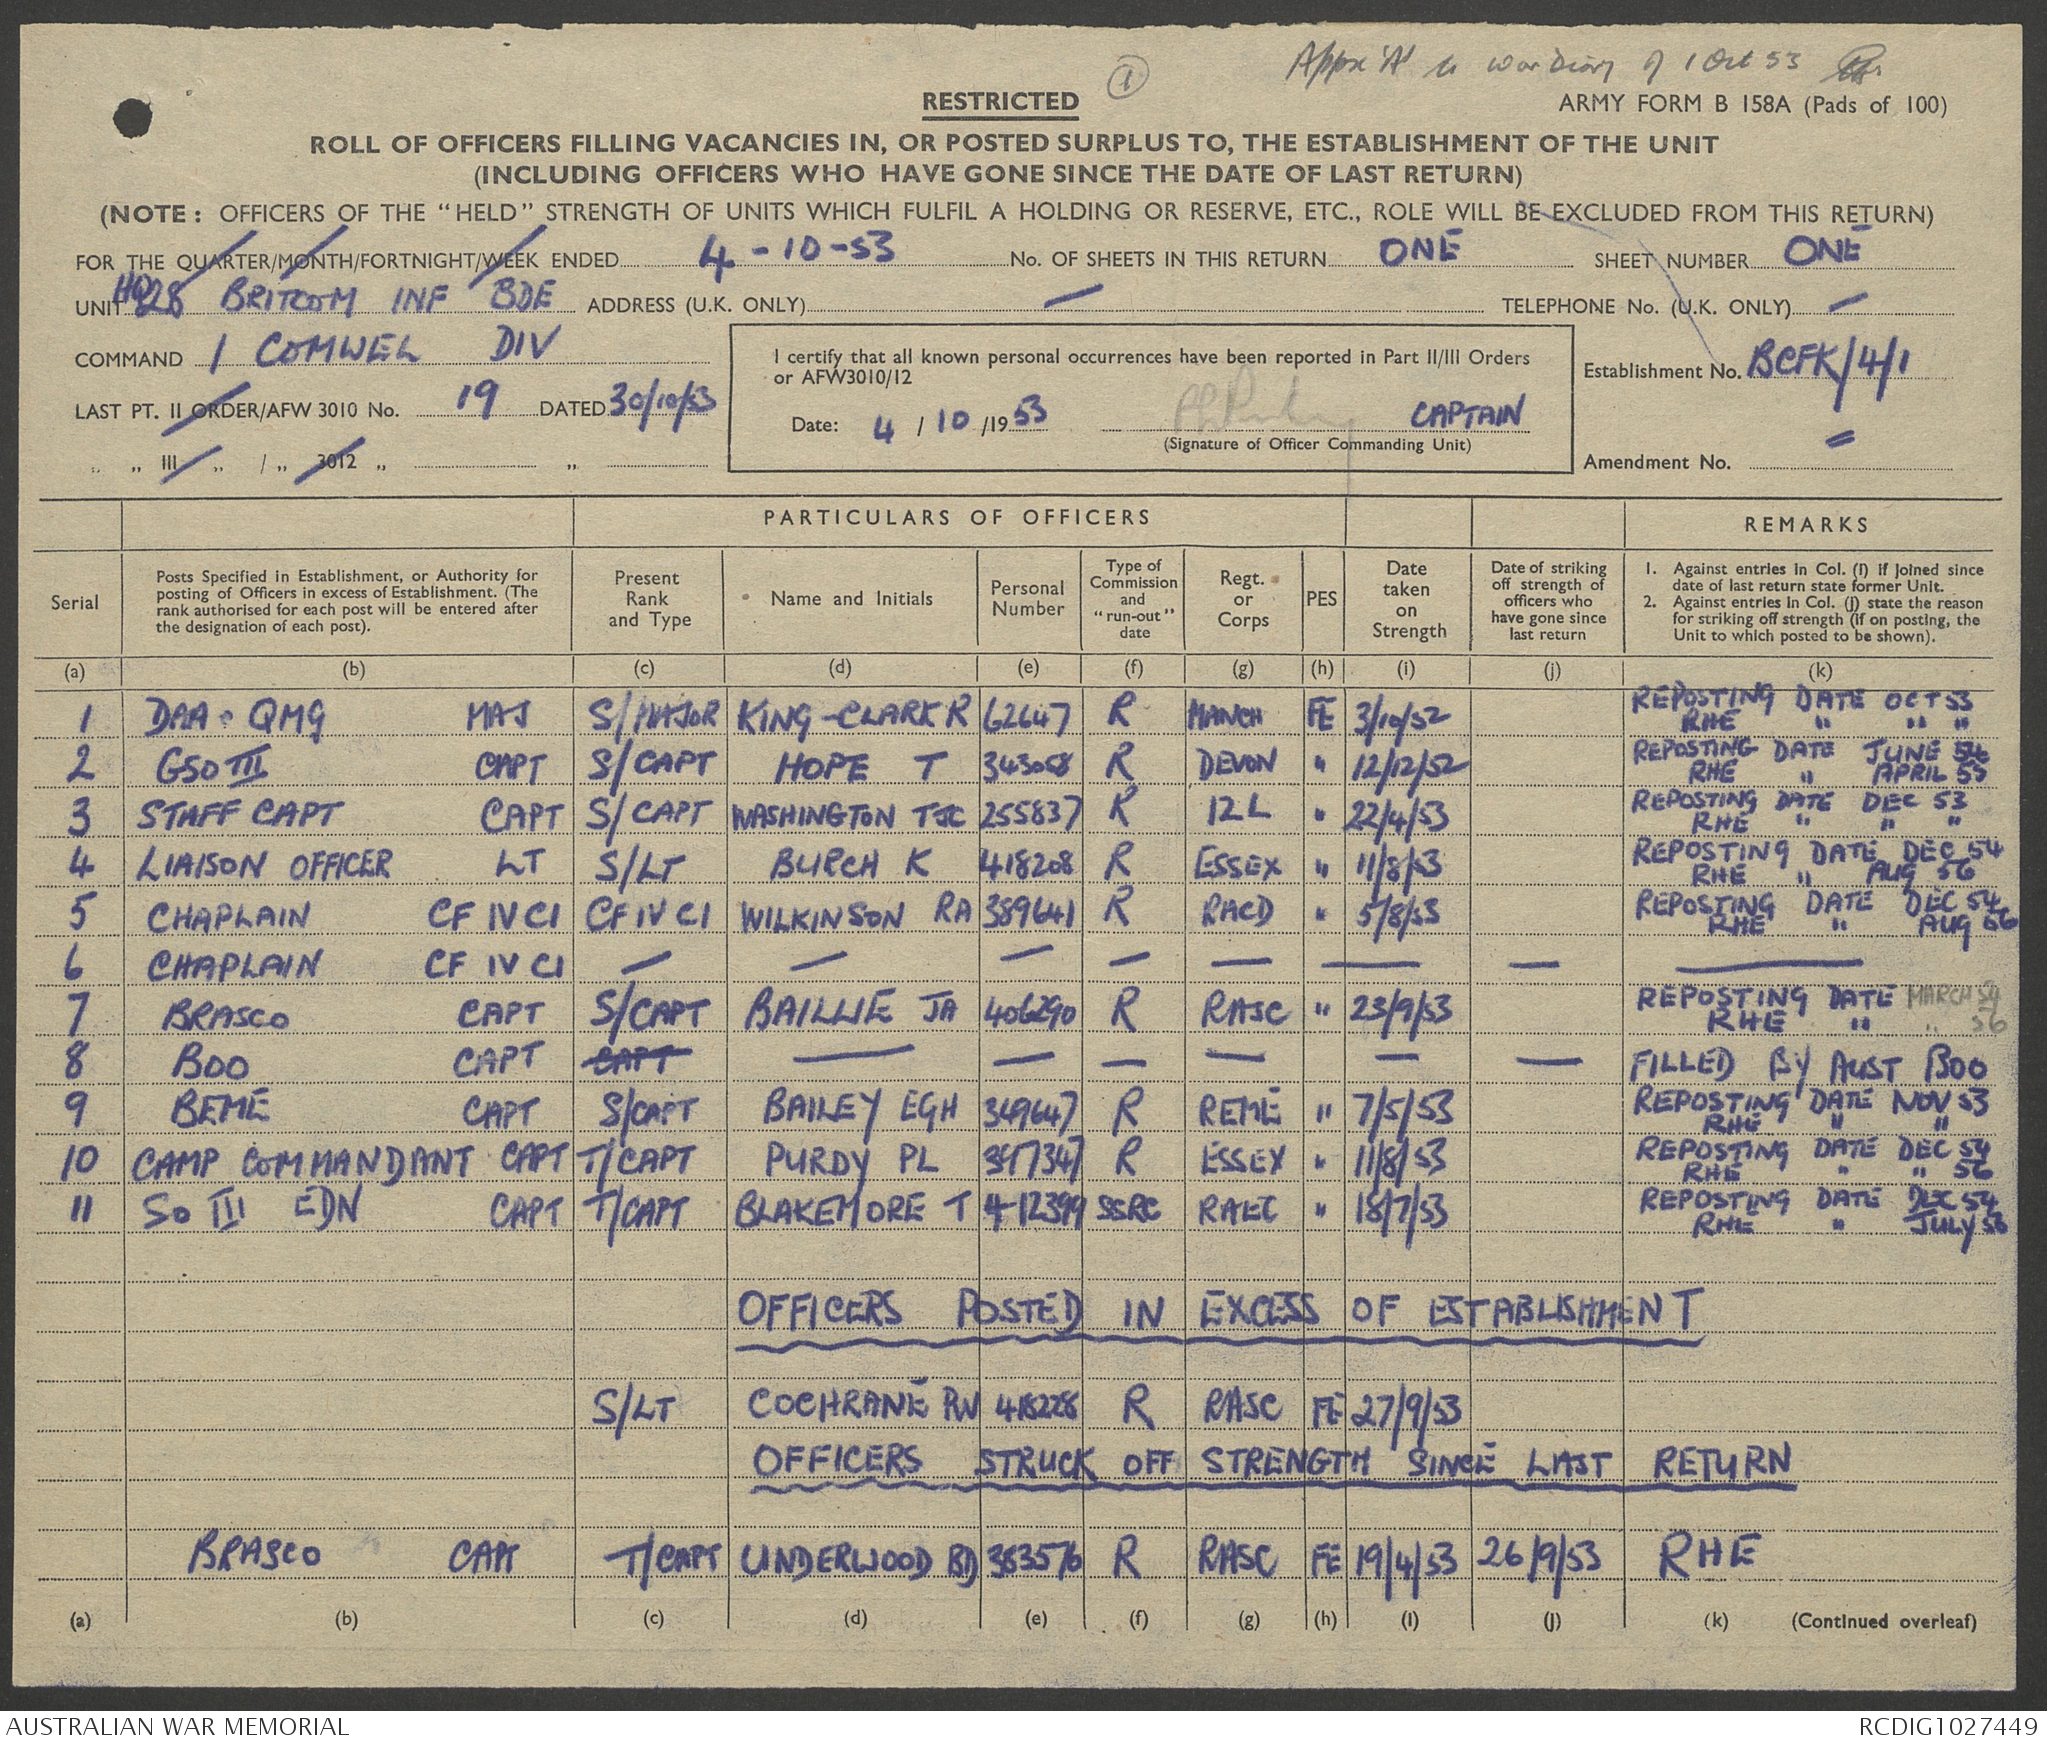 Appx 'A' to War Diary of 1 Oct 53
1
RESTRICTED
ARMY FORM B 158A (Pads of 100)
ROLL OF OFFICERS FILLING VACANCIES IN, OR POSTED SURPLUS TO, THE ESTABLISHMENT OF THE UNIT
(INCLUDING OFFICERS WHO HAVE GONE SINCE THE DATE OF LAST RETURN)
(NOTE: OFFICERS OF THE "HELD" STRENGTH OF UNITS WHICH FULFIL A HOLDING OR RESERVE, ETC., ROLE WILL BE EXCLUDED FROM THIS RETURN)
FOR THE QUARTER/MONTH/FORTNIGHT/WEEK ENDED 4-10-53 No. OF SHEETS IN THIS RETURN ONE SHEET NUMBER ONE
UNIT HQ 28 BRITCOM INF BDE ADDRESS (U.K. ONLY) — TELEPHONE No. (U.K. ONLY) —
COMMAND 1 COMWEL DIV
I certify that all known personal occurrences have been reported in Part II/III Orders
or AFW3010/12
Establishment No. BCFK/4/1
LAST PT. II ORDER/AFW 3010 No. 19 DATED 30/10/53
Date: 4 / 10 /1953 CAPTAIN
(Signature of Officer Commanding Unit)
" " III " / " 3012 " "
Amendment No. =
PARTICULARS OF OFFICERS REMARKS
Serial
Posts Specified in Establishment, or Authority for
posting of Officers in excess of Establishment. (The
rank authorised for each post will be entered after
the designation of each post).
Present
Rank
and Type
Name and Initials
Personal
Number
Type of
Commission
and
"run-out"
date
Regt.
or
Corps
PES
Date
taken
on
Strength
Date of striking
off strength of
officers who
have gone since
last return
1. Against entries in Col. (I) if joined since
date of last return state former Unit.
2. Against entries in Col. (j) state the reason
for striking off strength (if on posting, the
Unit to which posted to be shown).
(a) (b) (c) (d) (e) (f) (g) (h) (i) (j) (k)
1 DAA & QMG MAJ S/MAJOR KING-CLARK R 62647 R MANCH FE 3/10/52 REPOSTING DATE OCT 53
RHE " " "
2 GSO III CAPT S/CAPT HOPE T 343058 R DEVON " 12/12/52 REPOSTING DATE JUNE 54
RHE " APRIL 55
3 STAFF CAPT CAPT S/CAPT WASHINGTON TJC 255837 R 12L " 22/4/53 REPOSTING DATE DEC 53
RHE " " "
4 LIAISON OFFICER LT S/LT BURCH K 418208 R ESSEX " 11/8/53 REPOSTING DATE DEC 54
RHE " AUG 56
5 CHAPLAIN CF IV CI CF IV CI WILKINSON RA 389641 R RACD " 5/8/53 REPOSTING DATE DEC 54
RHE " AUG 56
6 CHAPLAIN CF IV CI — — — — — — — —
7 BRASCO CAPT S/CAPT BAILLIE JA 406290 R RASC " 23/9/53 REPOSTING DATE MARCH 54
RHE " " 56
8 BOO CAPT CAPT — — — — — — FILLED BY AUST BOO
9 BEME CAPT S/CAPT BAILEY EGH 349647 R REME " 7/5/53 REPOSTING DATE NOV 53
RHE " "
10 CAMP COMMANDANT CAPT T/CAPT PURDY PL 397347 R ESSEX " 11/8/53 REPOSTING DATE DEC 54
RHE " " 56
11 SO III EDN CAPT T/CAPT BLAKEMORE T 412399 SSRC RAEC " 18/7/53 REPOSTING DATE DEC 54
RHE " JULY 56
OFFICERS POSTED IN EXCESS OF ESTABLISHMENT
S/LT COCHRANE RW 418228 R RASC FE 27/9/53
OFFICERS STRUCK OFF STRENGTH SINCE LAST RETURN
BRASCO CAPT T/CAPT UNDERWOOD BD 383576 R RASC FE 19/4/53 26/9/53 RHE
(a) (b) (c) (d) (e) (f) (g) (h) (i) (j) (k) (Continued overleaf)
AUSTRALIAN WAR MEMORIAL RCDIG1027449